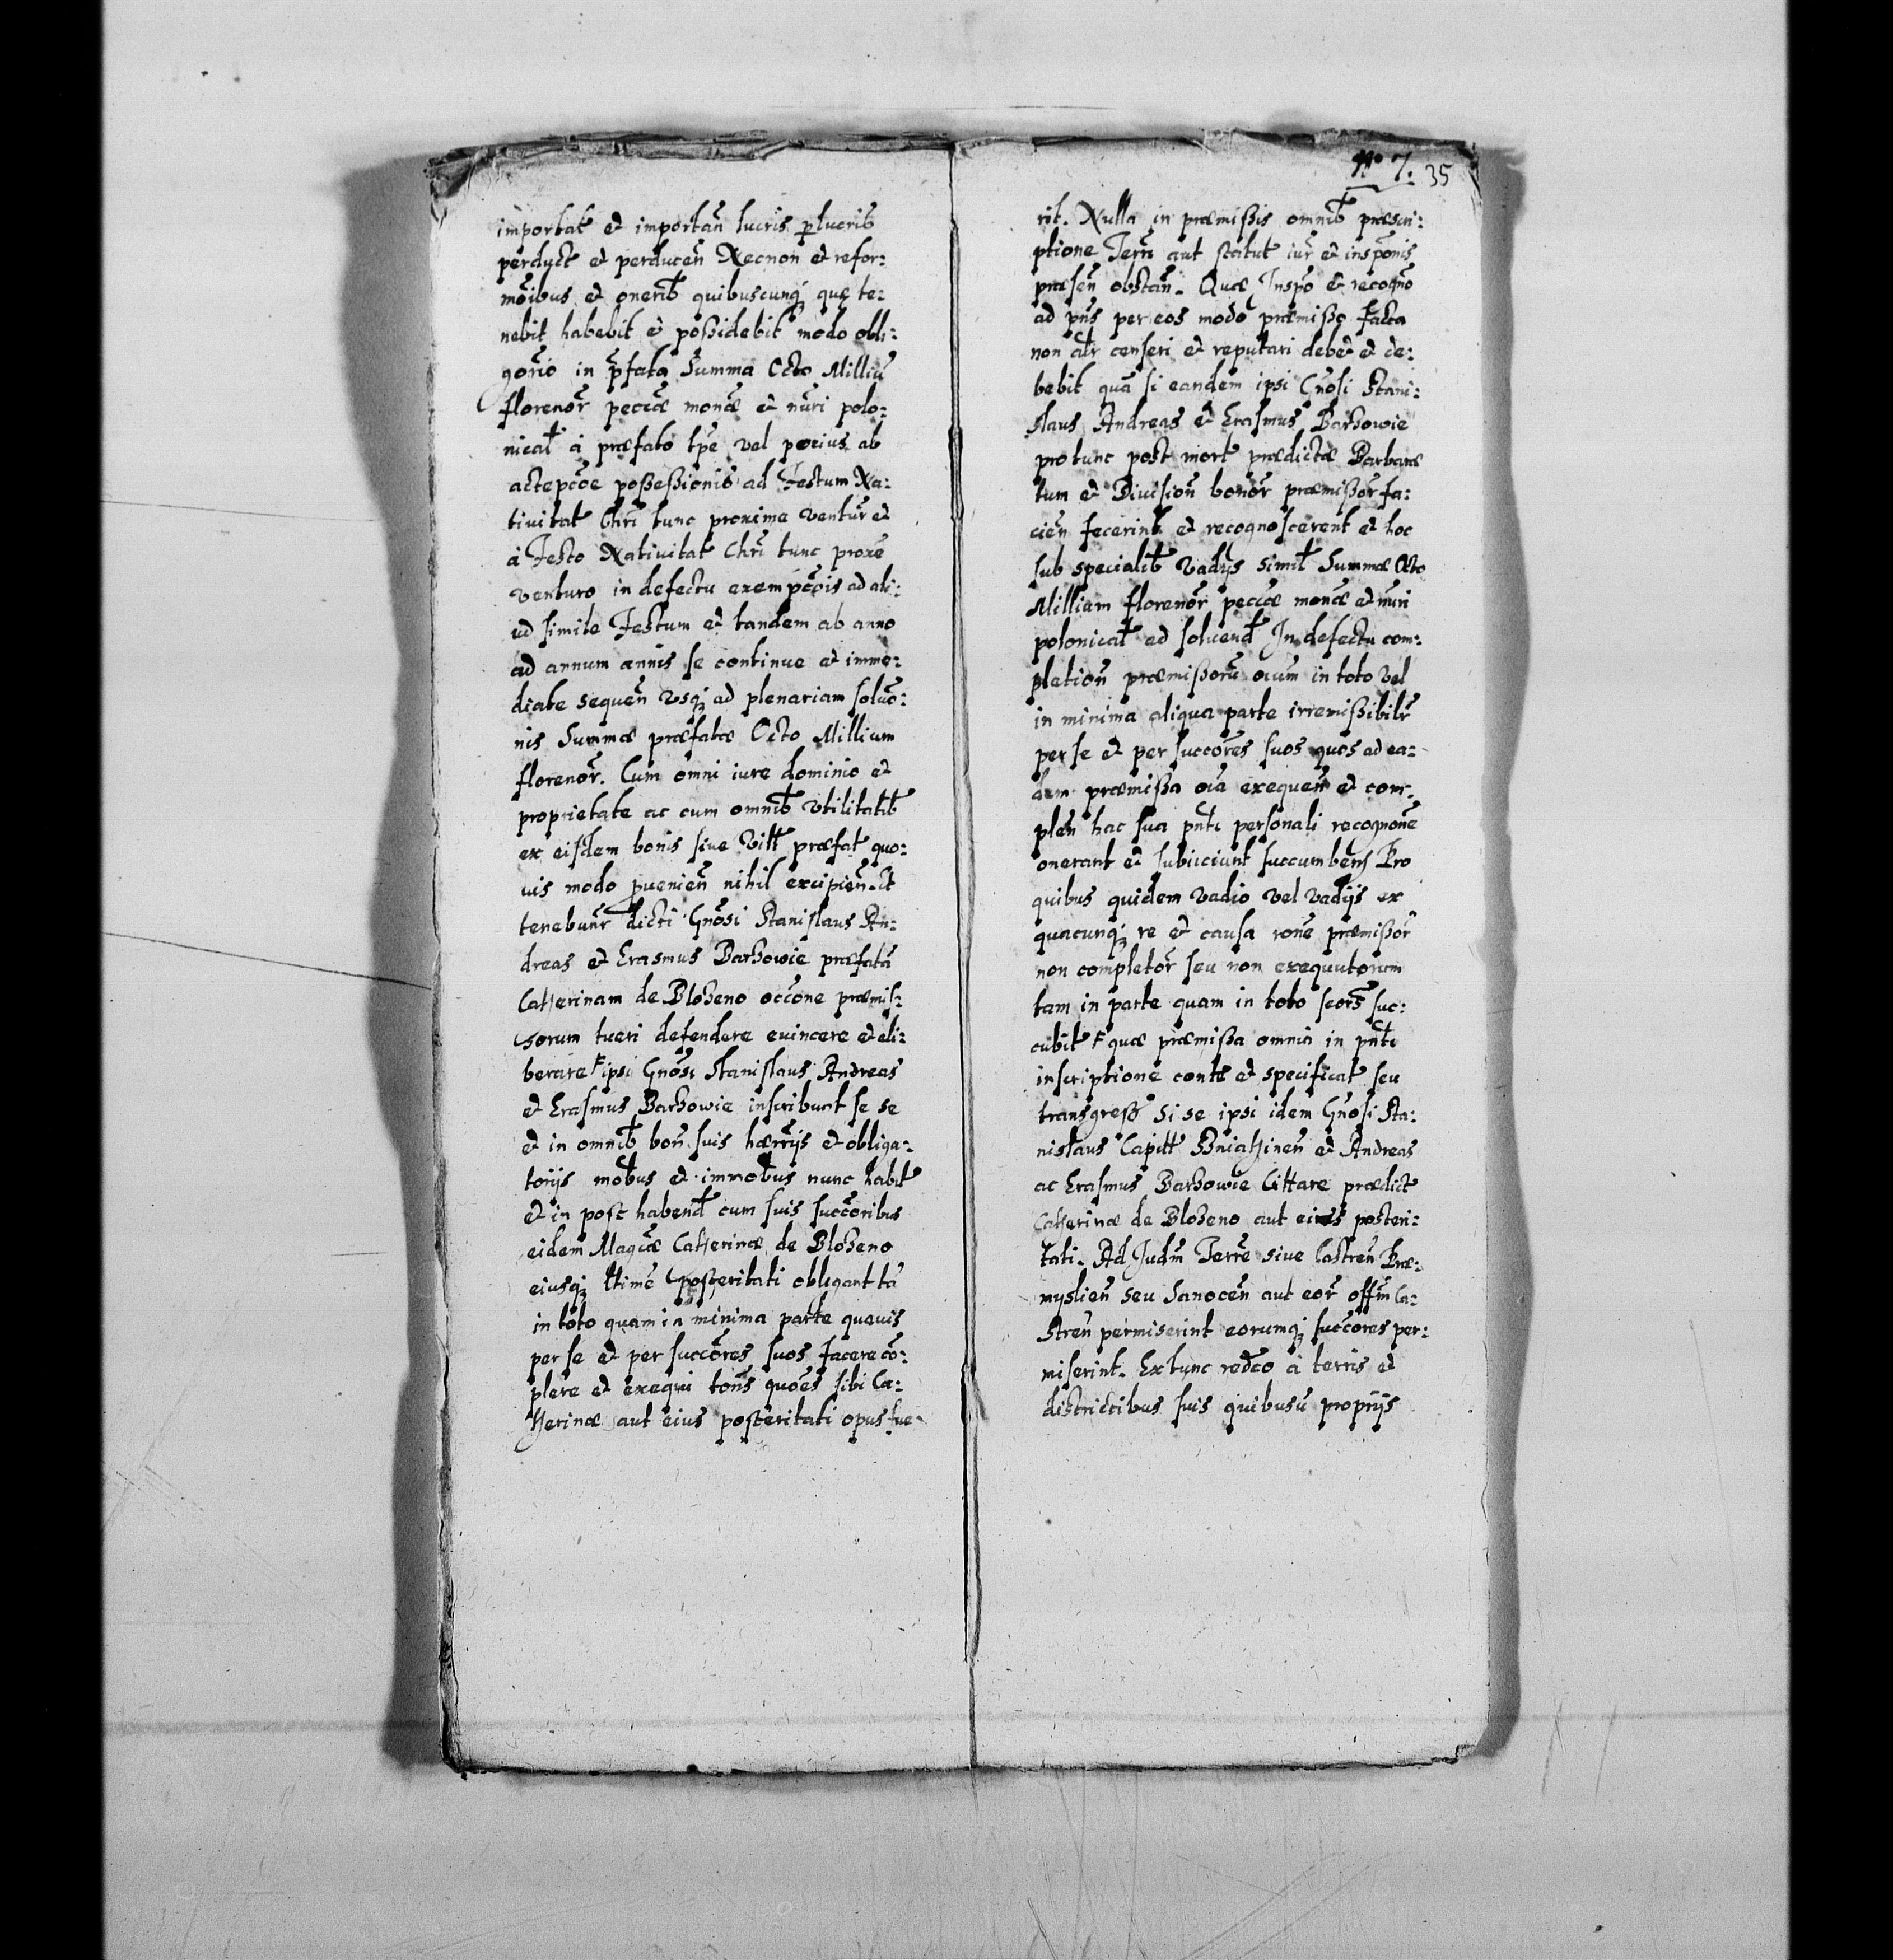 importat et importan̄ lucris perlucrib
perduct et perducen̄ Necnon et refor:
mōibus et onerib quibuscunq; quę te:
nebit habebit et poßidebit modo obli:
gōrio in p̄fata Summa Octo Milliū
florenor̄ peccæ monæ et nūri polo:
nical à præfato tp̄e vel pocius ab
actepcōe poßeßionis ad Festum Na:
tivitat Chrī tunc proxime ventur̄ et
à Festo Nativitat Chrī tunc proxe
venturo in defectu exempcōis ad ali:
ud simile Festum et tandem ab anno
ad annum annis se continue et imme:
diate sequen̄ vsq; ad plenariam soluō:
nis Summæ præfatæ Octo Millium
florenor̄. Cum omni iure dominio et
proprietate ac cum omnib vtilitatib
ex eisdem bonis siue Vill præfat quo:
uis modo puenien̄ nihil excipien̄. Et
tenebunr̄ dicti Gnōsi Stanislaus An:
dreas et Erasmus Barzowie præfatā
Catherinam de Blozeno occōne præmis:
sorum tueri defendere euincere et eli:
berare F ipsi Gnōsi Stanislaus Andreas
et Erasmus Barzowie inscribunt se se
et in omnib bon̄ suis hærrijs et obliga:
torijs mobus et immobus nunc habit
et in post habend cum suis succōribus
eidem Magcæ Catherinæ de Blozeno
eiusq; ltimē posteritati obligant tā
in toto quam in minima parte quauis
per se et per succōres suos facere cō:
plere et exequi toīīs quoēs sibi Ca:
therinæ aut eius posteritati opus fue:
No 7. 35
rit. Nulla in præmißis omnib præscri:
ptione Terrī aut statut iur̄ et inspōnis
præsen̄ obstan̄. Quæ Inspō et recogno
ad pn̄s per eos modo præmißo facta
non alr̄ censeri et reputari debet et de:
bebit quā si eandem ipsi Gnōsi Stani:
slaus Andreas et Erasmus Barzowie
pro tunc post mort prædictæ Barbaræ
tum et Diuision̄ bonor̄ præmißor̄ fa:
cien̄ fecerint et recognoscerent et hoc
sub specialib vadijs simil Summæ Octo
Milliam florenor̄ peccæ monæ et nūri
polonical ad soluend In defectu com:
pletion̄ præmißorū oium in toto vel
in minima aliqua parte irremißibilr̄
per se et per succōres suos quos ad ea:
dem præmißa oīa exequen̄ et com:
plen̄ hac sua pn̄ti personali recogōne
onerant et subijciunt succumben̄ Pro
quibus quidem vadio vel vadijs ex
quacunq; re et causa rōne præmißor̄
non completor̄ seu non exequutorum
tam in parte quam in toto seors̄ suc:
cubit F quæ præmißa omnia in pn̄ti
inscriptione cont et specificat seu
transgreß si se ipsi idem Gnōsi Sta:
nislaus Capitt Sniathinen̄ et Andreas
ac Erasmus Barzowie Cittare prædict
Catherinæ de Blozeno aut eius posteri:
tati. Ad Judm̄ Terrē siue Castren̄ Præ:
myslien̄ seu Sanocen̄ aut eor̄ offm̄ Ca:
stren̄ permiserint eorumq; succores per:
miserint. Ex tunc redco à terris et
districtibus suis quibusū proprijs